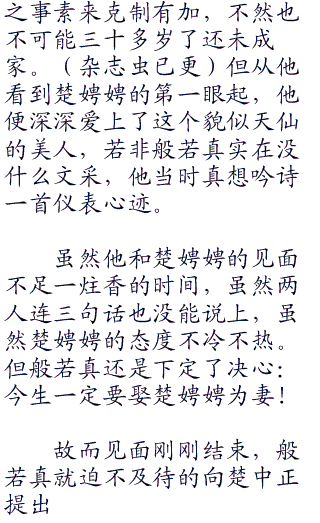 之事素来克制有加，不然也
不可能三十多岁了还未成
家。（杂志虫已更）但从他
看到楚娉娉的第一眼起，他
便深深爱上了这个貌似天仙
的美人，若非般若真实在没
什么文采，他当时真想吟诗
一首仪表心迹。
虽然他和楚娉娉的见面
不足一炷香的时间，虽然两
人连三句话也没能说上，虽
然楚娉娉的态度不冷不热。
但般若真还是下定了决心：
今生一定要娶楚娉娉为妻！
故而见面刚刚结束，般
若真就迫不及待的向楚中正
提出